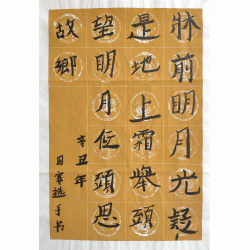 牀前明月光疑
是地上霜舉頭
望明月低頭思
故鄉
辛丑年
手书